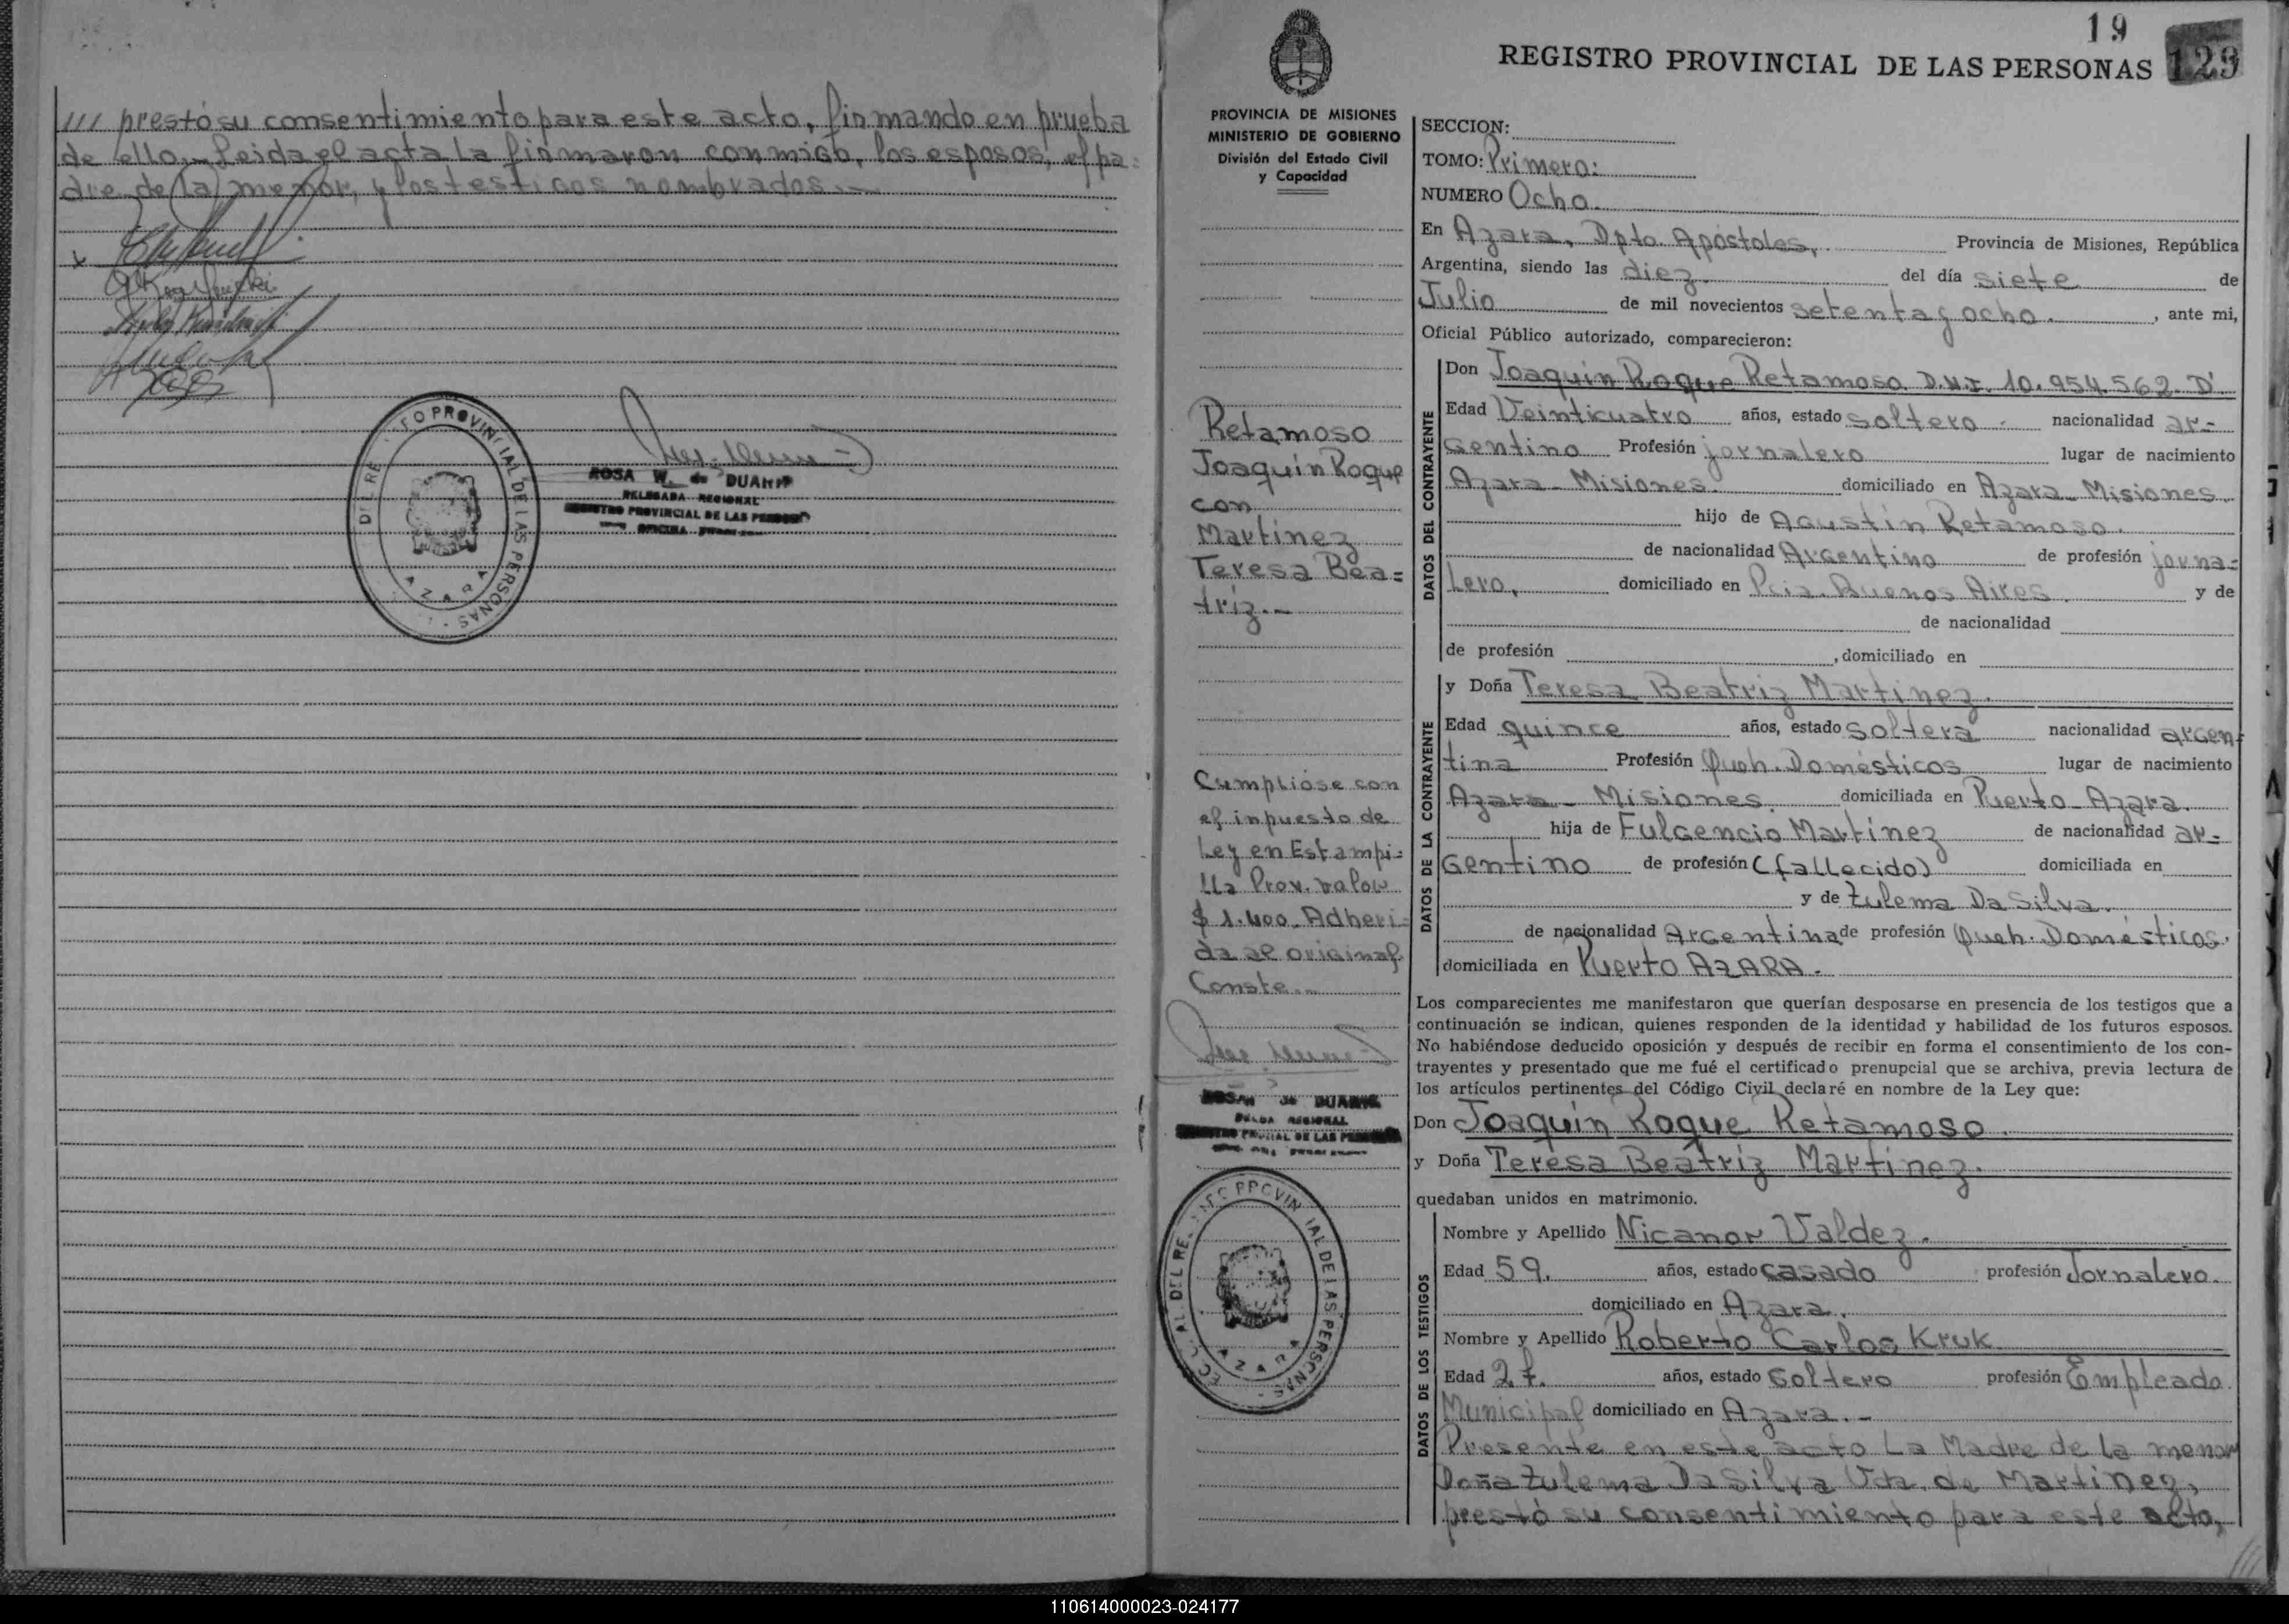 /// prestó su consentimiento para este acto, firmando en prueba
de ello.- Leida el acta la firmaron conmigo, los esposos, el pa=
dre de la menor, y los testigos nombrados.-
DEL REGISTRO PROVINCIAL DE LAS PERSONAS
AZARA
ROSA W. de DUARTE
DELEGADA REGIONAL
REGISTRO PROVINCIAL DE LAS PERSONAS
19
REGISTRO PROVINCIAL DE LAS PERSONAS 129
PROVINCIA DE MISIONES
MINISTERIO DE GOBIERNO
División del Estado Civil
y Capacidad
Retamoso
Joaquín Roque
con
Martínez
Teresa Bea=
tríz.-
Cumplióse con
el inpuesto de
Ley en Estampi=
lla Prov. valor
$ 1.400. Adheri=
da al original.
Conste.-
ROSA W. de DUARTE
DELEGADA REGIONAL
REGISTRO PROVINCIAL DE LAS PERSONAS
DEL REGISTRO PROVINCIAL DE LAS PERSONAS
AZARA
SECCION:
TOMO: Primero:
NUMERO Ocho.
En Azara, Dpto. Apóstoles, Provincia de Misiones, República
Argentina, siendo las diez del día siete de
Julio de mil novecientos setenta y ocho. , ante mi,
Oficial Público autorizado, comparecieron:
DATOS DEL CONTRAYENTE
Don Joaquín Roque Retamoso D.N.I. 10.954.562. D'.
Edad Veinticuatro años, estado soltero - nacionalidad ar=
gentino Profesión jornalero lugar de nacimiento
Azara - Misiones. domiciliado en Azara - Misiones.
hijo de Agustín Retamoso.
de nacionalidad Argentino de profesión jorna=
lero, domiciliado en Pcia. Buenos Aires. y de
de nacionalidad
de profesión , domiciliado en
DATOS DE LA CONTRAYENTE
y Doña Teresa Beatriz Martinez.
Edad quince años, estado soltera nacionalidad argen=
tina Profesión Queh. Domésticos lugar de nacimiento
Azara - Misiones. domiciliada en Puerto - Azara.
hija de Fulgencio Martínez de nacionalidad ar=
gentino de profesión (fallecido) domiciliada en
y de Zulema Da Silva.
de nacionalidad Argentina de profesión Queh. Domésticos.
domiciliada en Puerto AZARA.
Los comparecientes me manifestaron que querían desposarse en presencia de los testigos que a
continuación se indican, quienes responden de la identidad y habilidad de los futuros esposos.
No habiéndose deducido oposición y después de recibir en forma el consentimiento de los con-
trayentes y presentado que me fué el certificado prenupcial que se archiva, previa lectura de
los artículos pertinentes del Código Civil declaré en nombre de la Ley que:
Don Joaquín Roque Retamoso.
y Doña Teresa Beatríz Martínez.
quedaban unidos en matrimonio.
DATOS DE LOS TESTIGOS
Nombre y Apellido Nicanor Valdez.
Edad 59. años, estado casado profesión Jornalero.
domiciliado en Azara.
Nombre y Apellido Roberto Carlos Kruk
Edad 27. años, estado Soltero profesión Empleado
Municipal domiciliado en Azara.-
Presente en este acto La Madre de la menor
Doña Zulema Da Silva Vda. de Martinez,
prestó su consentimiento para este acto,
///
110614000023-024177